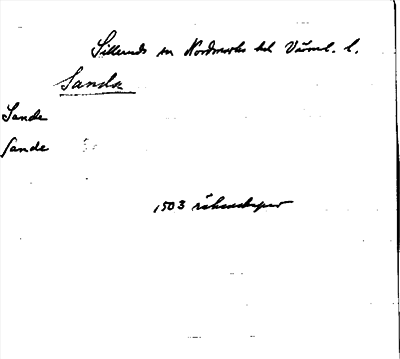 Silleruds sn Nordmarks hd Värml. l.
Sanda
Sande
sande
1503 räkenskaper